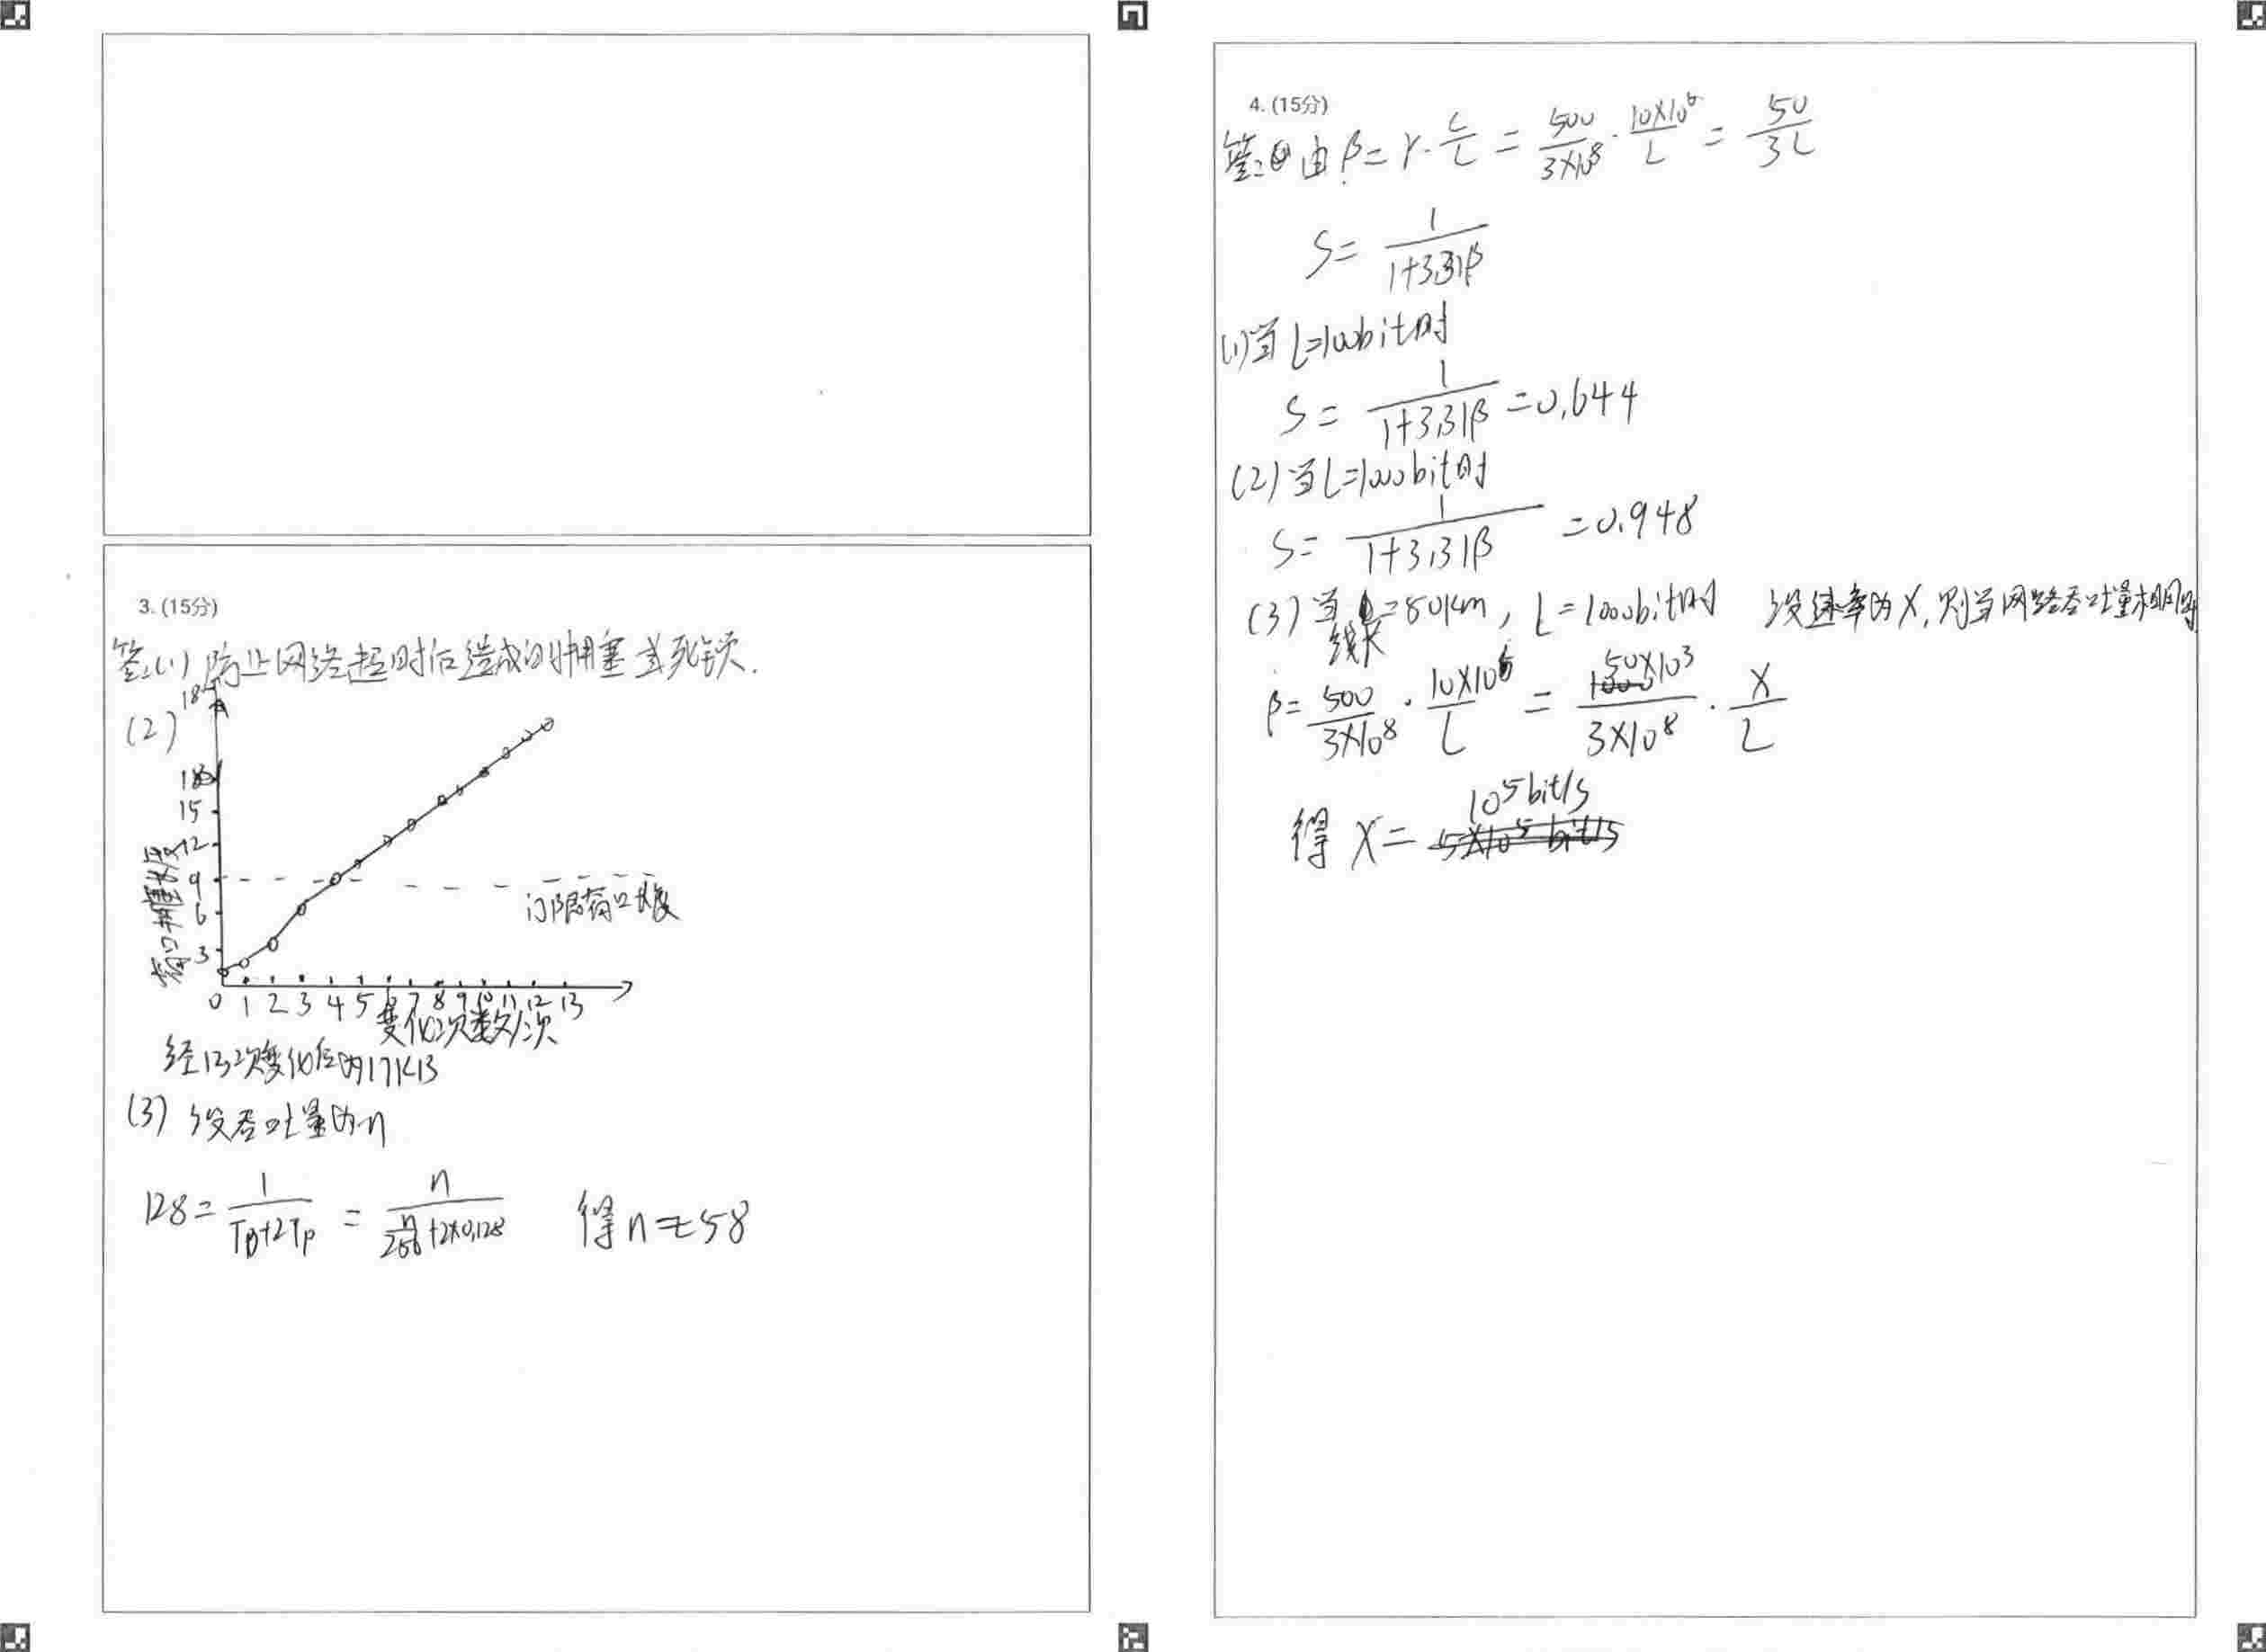 3. (15分)
答:(1) 防止网络超时后造成的拥塞或死锁.
(2)
18
15
12
9
6
3
门限窗口长度
0 1 2 3 4 5 6 7 8 9 10 11 12 13
变化次数/次
经13次变化后为17KB
(3) 设吞吐量为n
128 = 1/(TD+2Tp) = n/(n/256+2×0.128) 得 n = 58
4. (15分)
答: 由 β = γ·C/L = 500/(3×10⁸) · (10×10⁶)/L = 50/(3L)
S = 1/(1+3.31β)
(1) 当 L=100bit时
S = 1/(1+3.31β) = 0.644
(2) 当 L=1000bit时
S = 1/(1+3.31β) = 0.948
(3) 当线长=50km, L=1000bit时 设速率为X, 则当网络吞吐量相同时
β = 500/(3×10⁸) · (10×10⁶)/L = (50×10³)/(3×10⁸) · X/L
得 X = 10⁵bit/s